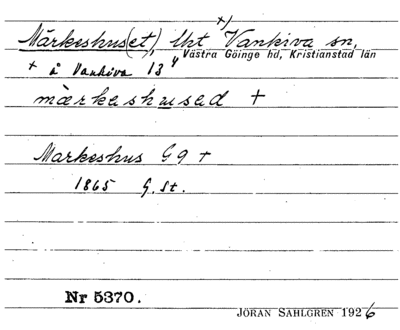 +)
Märkeshus(et), lht Vankiva sn,
Västra Göinge hd, Kristianstad län
+ å Vankiva 13 4
mà̀rkeshused +
Markeshus G9 +
1865 G.st.
Nr 5370.
JÖRAN SAHLGREN 1926